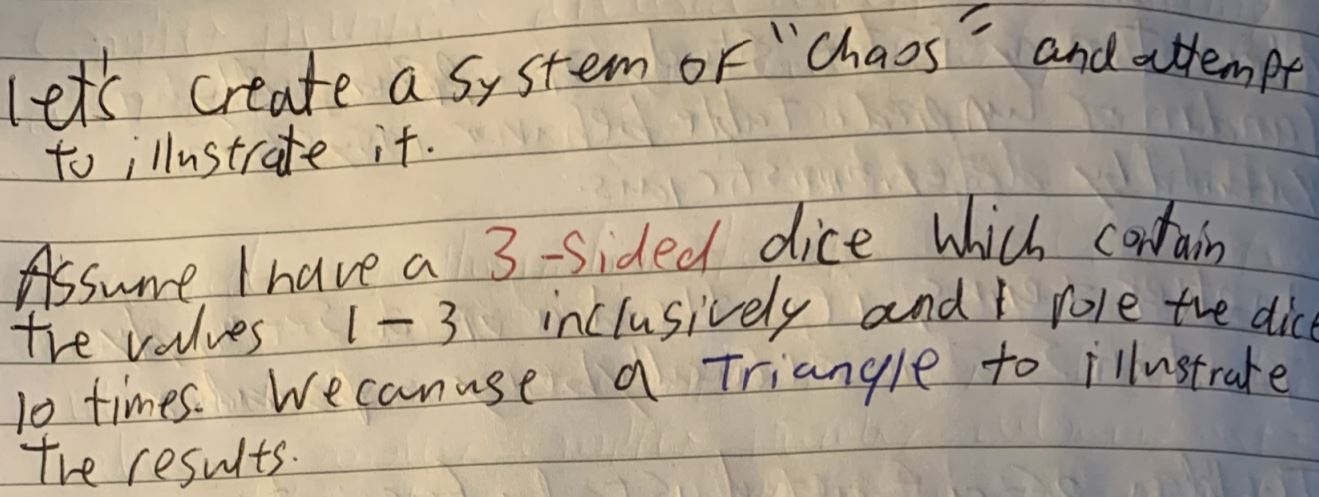 let's create a system of "Chaos" and attempt
to illustrate it.
Assume I have a 3-sided dice which contain
the values 1-3 inclusively and I role the dice
10 times. We can use a Triangle to illustrate
The results.